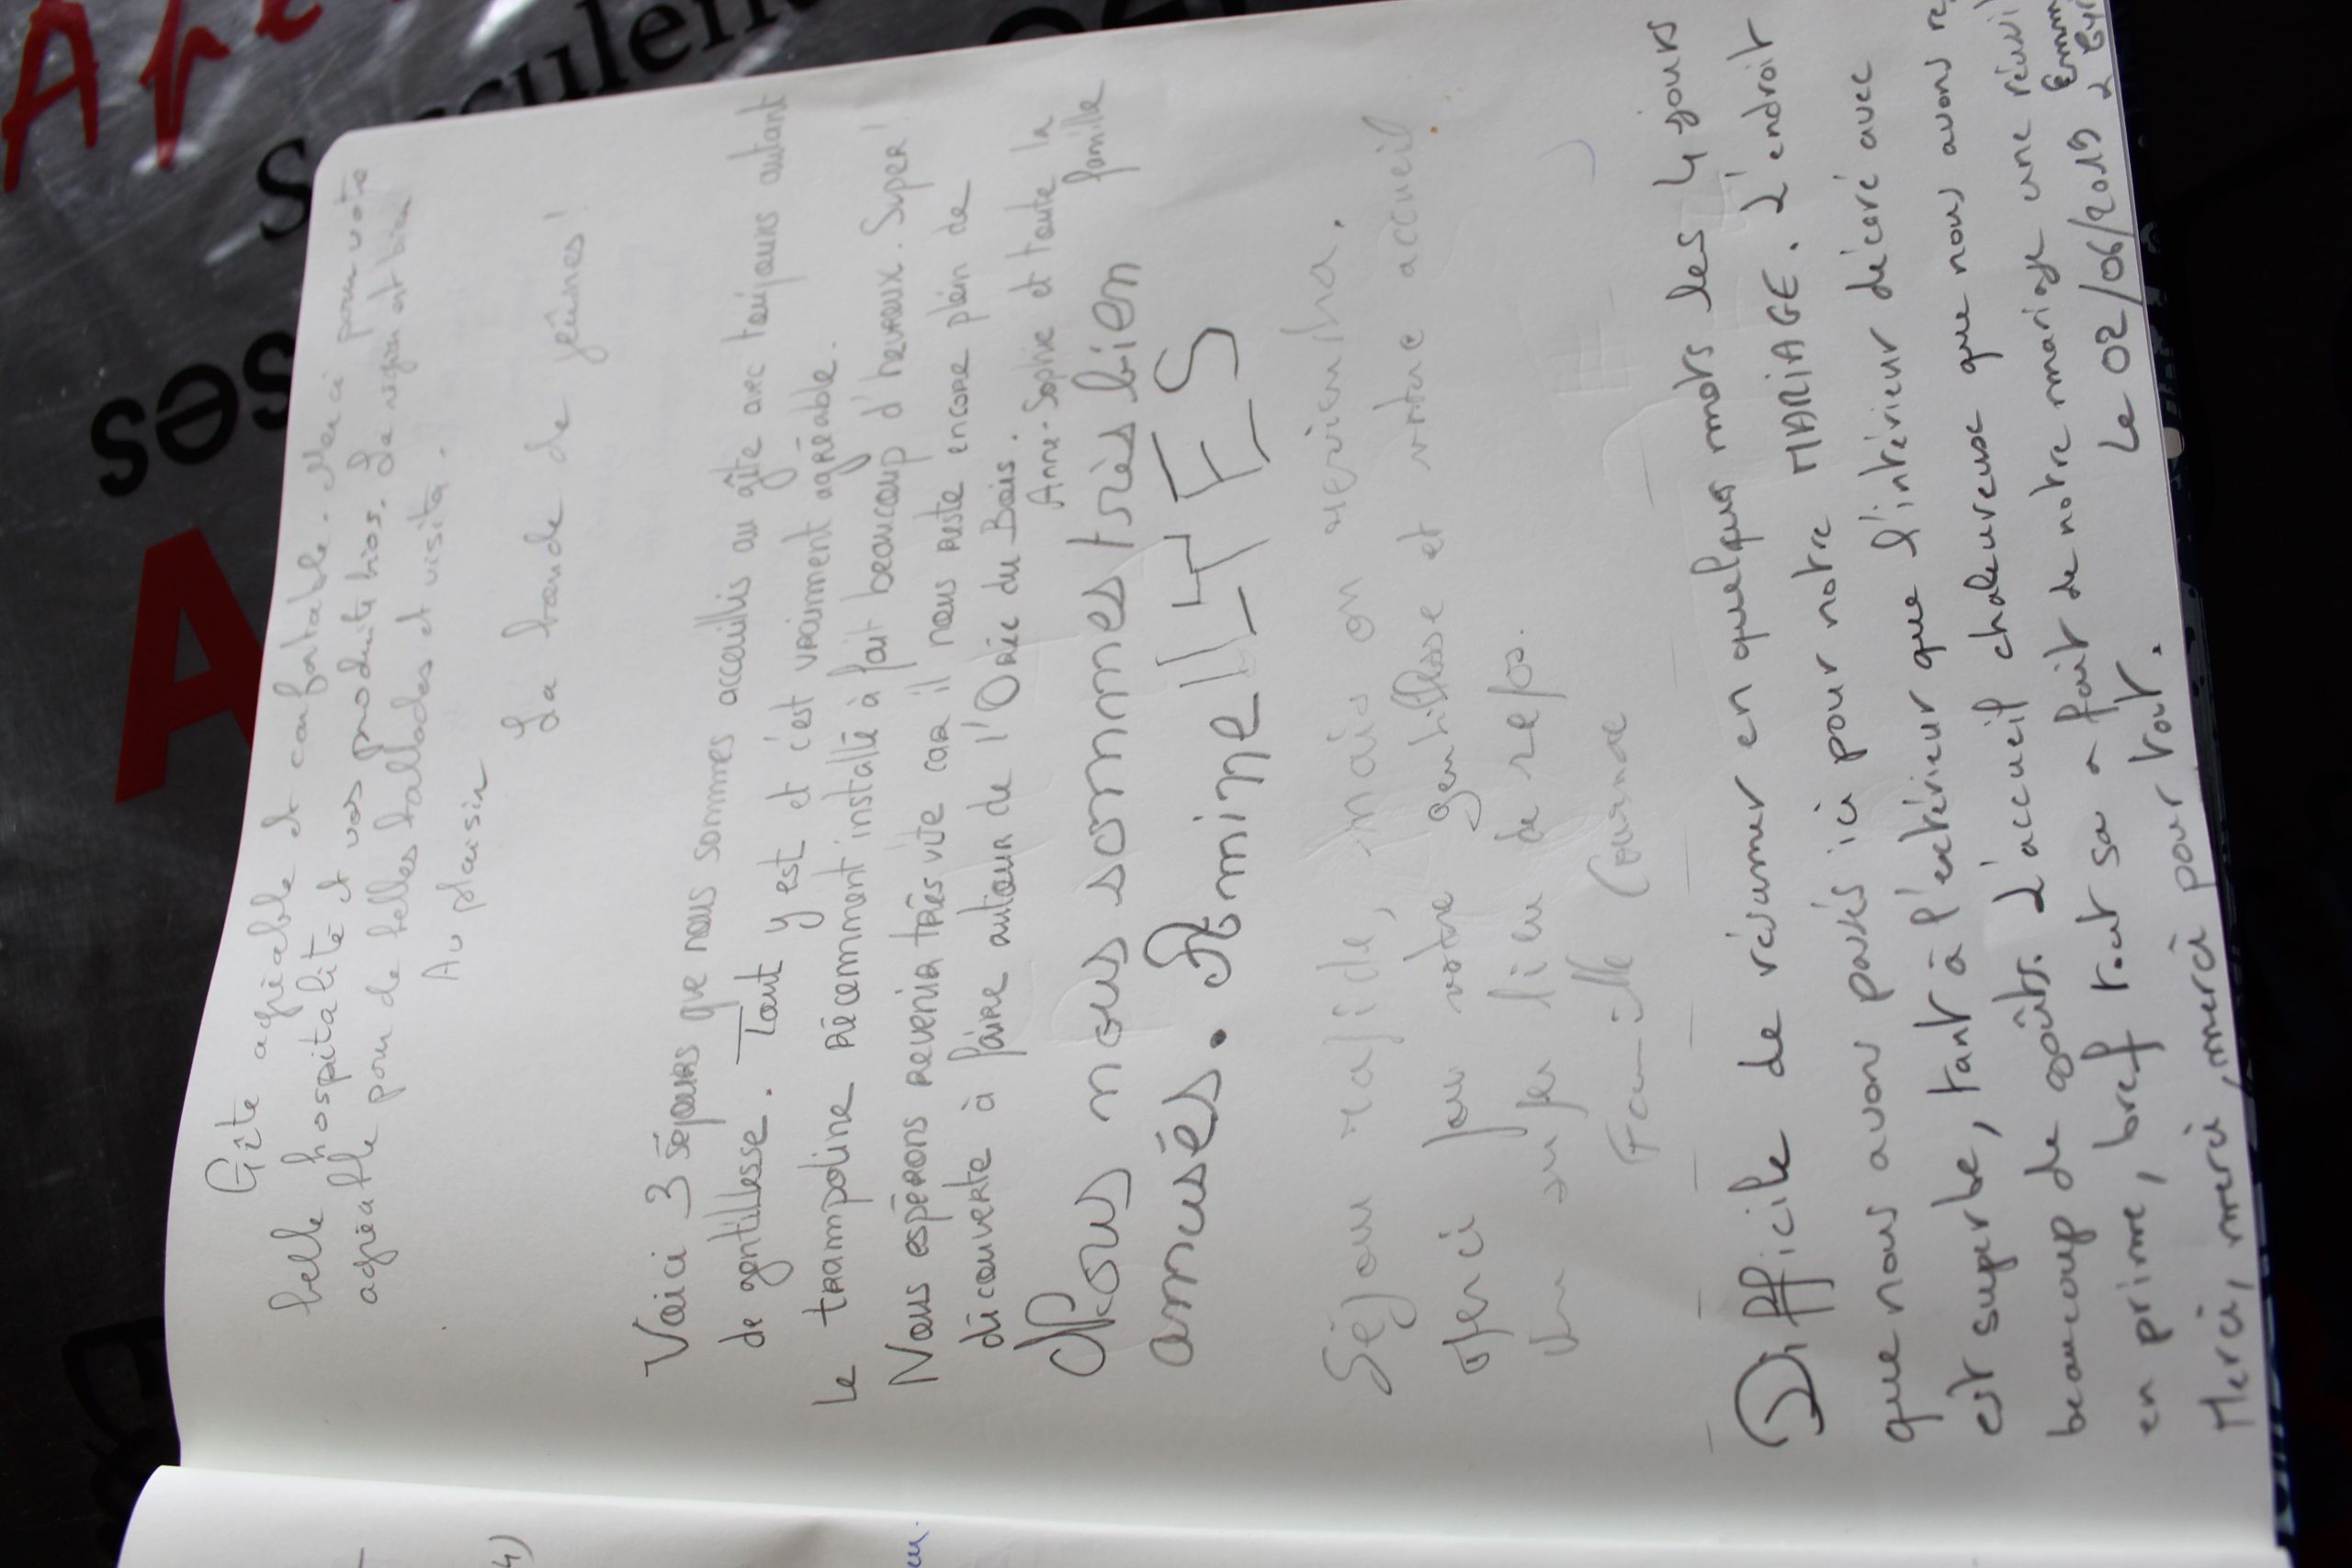 Gîte agréable et confortable. Merci pour votre
belle hospitalité et vos produits bios. La région est bien
agréable pour de belles ballades et visites.
Au plaisir
La bande de jeûnes!
Voici 3 séjours que nous sommes accueillis au gîte avec toujours autant
de gentillesse. Tout y est et c'est vraiment agréable.
Le trampoline récemment installé à fait beaucoup d'heureux. Super!
Nous espérons revenir très vite car il nous reste encore plein de
découverte à faire autour de l'Orée du Bois.
Anne-Sophie et toute la
famille
Nous nous sommes très bien
amusés.
Séjour rapide, mais on reviendra.
Merci pour votre gentillesse et votre accueil
Un super lieu de repos.
Famille
Difficile de résumer en quelques mots les 4 jours
que nous avons passés ici pour notre MARIAGE. L'endroit
est superbe, tant à l'extérieur que l'intérieur décoré avec
beaucoup de goûts. L'accueil chaleureuse que nous avons
en prime, bref tout sa a fait de notre mariage une
Merci, merci, merci pour tout.
Le 02/06/2019
Ape
ses
A